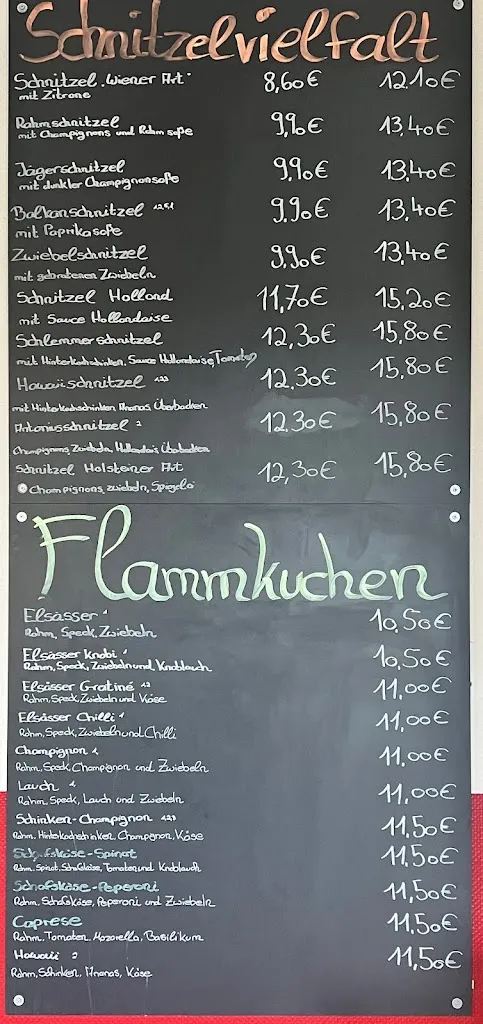 Schnitzelvielfalt
Schnitzel "Wiener Art" 8,60€ 12,10€
mit Zitrone
Rahmschnitzel 9,90€ 13,40€
mit Champignons und Rahmsoße
Jägerschnitzel 9,90€ 13,40€
mit dunkler Champignonsoße
Balkanschnitzel 9,90€ 13,40€
mit Paprikasoße
Zwiebelschnitzel 9,90€ 13,40€
mit gebratenen Zwiebeln
Schnitzel Holland 11,70€ 15,20€
mit Sauce Hollondaise
Schlemmerschnitzel 12,30€ 15,80€
mit Hinterkochschinken, Sauce Hollandaise, Tomaten
Hawaiischnitzel 1,2,3 12,30€ 15,80€
mit Hinterkochschinken, Ananas, Überbacken
Antoniusschnitzel 2 12,30€ 15,80€
Champignons, Zwiebeln, Hollandais, Überbacken
Schnitzel Holsteiner Art 12,30€ 15,80€
Champignons, Zwiebeln, Spiegelei
Flammkuchen
Elsässer 1 10,50€
Rahm, Speck, Zwiebeln
Elsässer Knobi 1 10,50€
Rahm, Speck, Zwiebeln und Knoblauch
Elsässer Gratiné 1,2 11,00€
Rahm, Speck, Zwiebeln und Käse
Elsässer Chilli 1 11,00€
Rahm, Speck, Zwiebeln und Chilli
Champignon 1 11,00€
Rahm, Speck, Champignon und Zwiebeln
Lauch 1 11,00€
Rahm, Speck, Lauch und Zwiebeln
Schinken-Champignon 1,2,3 11,50€
Rahm, Hinterkochschinken, Champignon, Käse
Schafskäse-Spinat 11,50€
Rahm, Spinat, Schafskäse, Tomaten und Knoblauch
Schafskäse-Peperoni 11,50€
Rahm, Schafskäse, Peperoni und Zwiebeln
Caprese 11,50€
Rahm, Tomaten, Mozarella, Basilikum
Hawaii 2 11,50€
Rahm, Schinken, Ananas, Käse